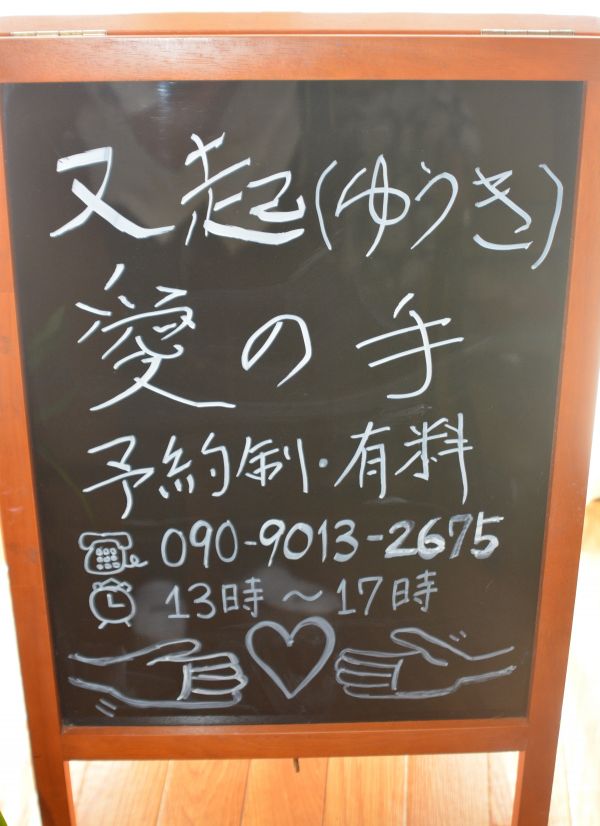 又起(ゆうき)
愛の手
予約制・有料
090-9013-2675
13時～17時